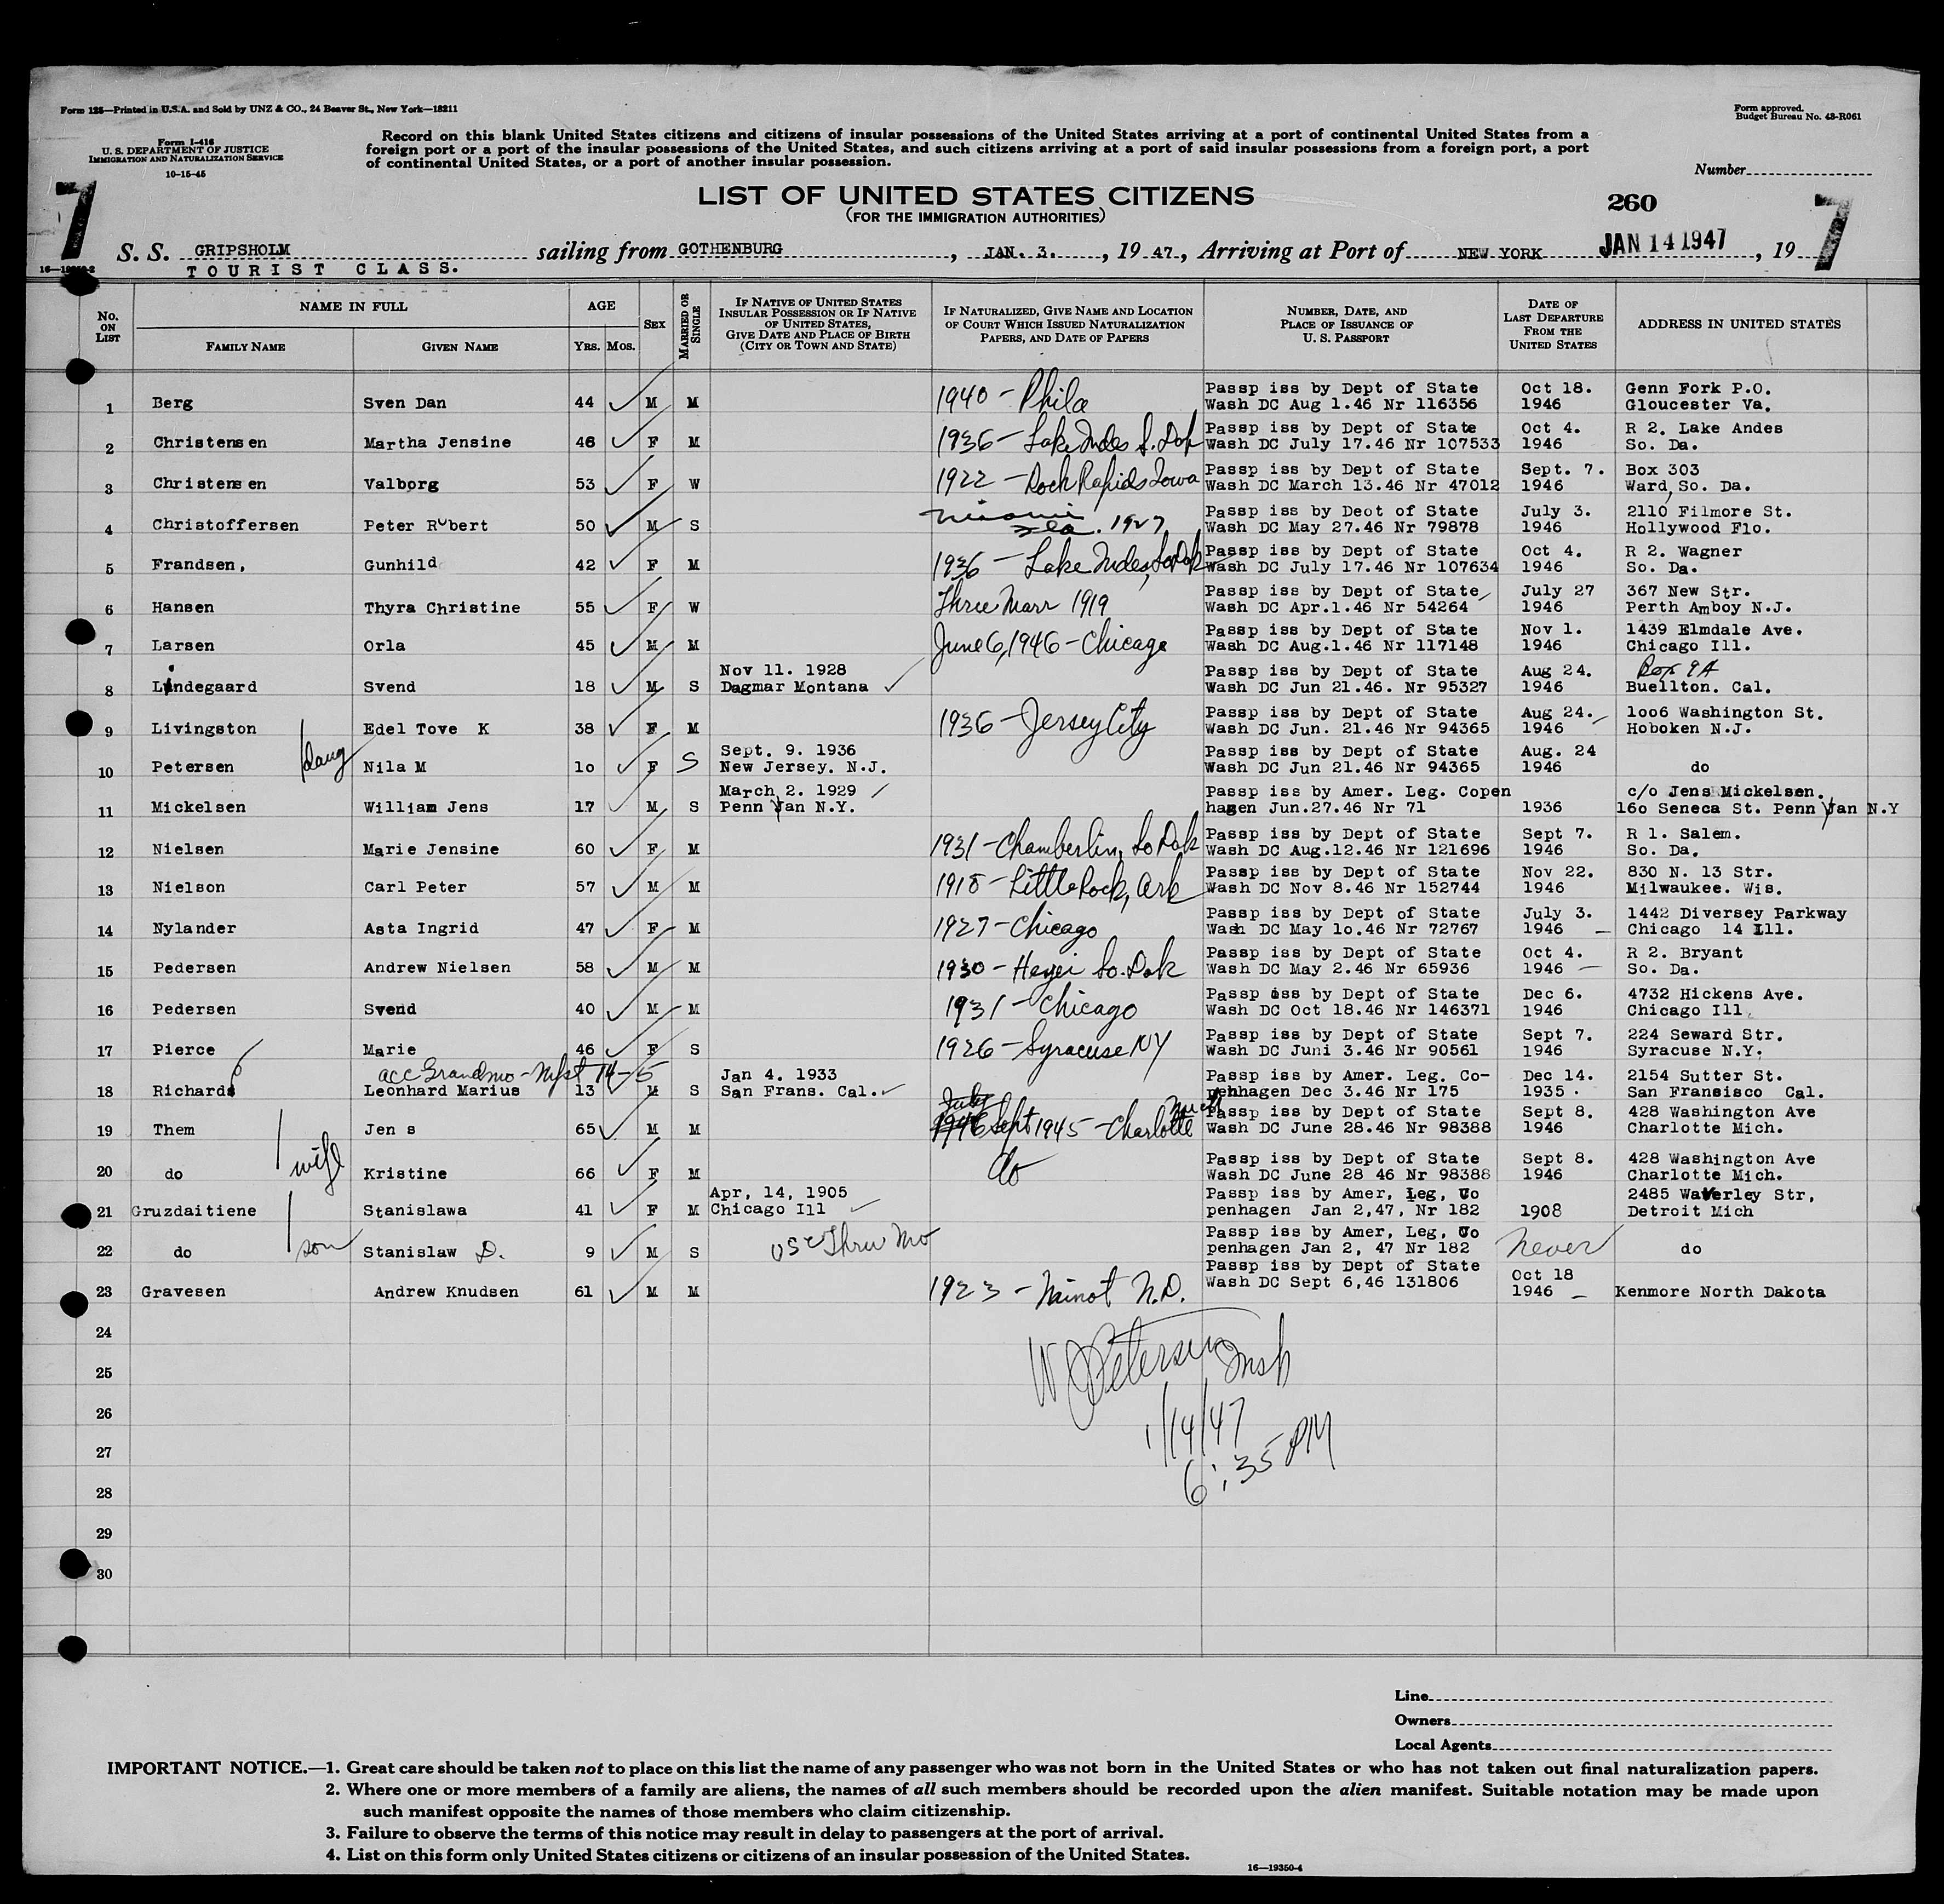 Form 125—Printed in U.S.A. and Sold by UNZ & CO., 24 Beaver St., New York—18211
Form approved.
Budget Bureau No. 43-R061
Form I-416
U. S. DEPARTMENT OF JUSTICE
IMMIGRATION AND NATURALIZATION SERVICE
10-15-45
Record on this blank United States citizens and citizens of insular possessions of the United States arriving at a port of continental United States from a
foreign port or a port of the insular possessions of the United States, and such citizens arriving at a port of said insular possessions from a foreign port, a port
of continental United States, or a port of another insular possession.
Number
7
LIST OF UNITED STATES CITIZENS
(FOR THE IMMIGRATION AUTHORITIES)
260
7
S. S. GRIPSHOLM sailing from GOTHENBURG, JAN. 3., 19 47, Arriving at Port of NEW YORK JAN 14 1947, 19
TOURIST CLASS.
No. ON LIST
NAME IN FULL
FAMILY NAME
GIVEN NAME
AGE
YRS. MOS.
SEX
MARRIED OR SINGLE
IF NATIVE OF UNITED STATES INSULAR POSSESSION OR IF NATIVE OF UNITED STATES, GIVE DATE AND PLACE OF BIRTH (CITY OR TOWN AND STATE)
IF NATURALIZED, GIVE NAME AND LOCATION OF COURT WHICH ISSUED NATURALIZATION PAPERS, AND DATE OF PAPERS
NUMBER, DATE, AND PLACE OF ISSUANCE OF U. S. PASSPORT
DATE OF LAST DEPARTURE FROM THE UNITED STATES
ADDRESS IN UNITED STATES
1 Berg Sven Dan 44 M M 1940 - Phila Passp iss by Dept of State Oct 18. Genn Fork P.O.
Wash DC Aug 1.46 Nr 116356 1946 Gloucester Va.
2 Christensen Martha Jensine 46 F M 1936 - Lake Andes S. Dak Passp iss by Dept of State Oct 4. R 2. Lake Andes
Wash DC July 17.46 Nr 107533 1946 So. Da.
3 Christensen Valborg 53 F W 1922 - Rock Rapids Iowa Passp iss by Dept of State Sept. 7. Box 303
Wash DC March 13.46 Nr 47012 1946 Ward, So. Da.
4 Christoffersen Peter Rubert 50 M S Miami Fla. 1927 Passp iss by Deot of State July 3. 2110 Filmore St.
Wash DC May 27.46 Nr 79878 1946 Hollywood Flo.
5 Frandsen, Gunhild 42 F M 1936 - Lake Andes, So Dak Passp iss by Dept of State Oct 4. R 2. Wagner
Wash DC July 17.46 Nr 107634 1946 So. Da.
6 Hansen Thyra Christine 55 F W Thru Marr 1919 Passp iss by Dept of State July 27 367 New Str.
Wash DC Apr.1.46 Nr 54264 1946 Perth Amboy N.J.
7 Larsen Orla 45 M M June 6, 1946 - Chicago Passp iss by Dept of State Nov 1. 1439 Elmdale Ave.
Wash DC Aug.1.46 Nr 117148 1946 Chicago Ill.
8 Lindegaard Svend 18 M S Nov 11. 1928 Passp iss by Dept of State Aug 24. Box 9A
Dagmar Montana Wash DC Jun 21.46. Nr 95327 1946 Buellton. Cal.
9 Livingston Edel Tove K 38 F M 1936 - Jersey City Passp iss by Dept of State Aug 24. 1oo6 Washington St.
Wash DC Jun. 21.46 Nr 94365 1946 Hoboken N.J.
10 Petersen daug Nila M 1o F S Sept. 9. 1936 Passp iss by Dept of State Aug. 24
New Jersey. N.J. Wash DC Jun 21.46 Nr 94365 1946 do
11 Mickelsen William Jens 17 M S March 2. 1929 Passp iss by Amer. Leg. Copen c/o Jens Mickelsen.
Penn Yan N.Y. hagen Jun.27.46 Nr 71 1936 16o Seneca St. Penn Yan N.Y
12 Nielsen Marie Jensine 60 F M 1931 - Chamberlin, So Dak Passp iss by Dept of State Sept 7. R 1. Salem.
Wash DC Aug.12.46 Nr 121696 1946 So. Da.
13 Nielson Carl Peter 57 M M 1918 - Little Rock, Ark Passp iss by Dept of State Nov 22. 830 N. 13 Str.
Wash DC Nov 8.46 Nr 152744 1946 Milwaukee. Wis.
14 Nylander Asta Ingrid 47 F M 1927 - Chicago Passp iss by Dept of State July 3. 1442 Diversey Parkway
Wash DC May 1o.46 Nr 72767 1946 Chicago 14 Ill.
15 Pedersen Andrew Nielsen 58 M M 1930 - So. Dak Passp iss by Dept of State Oct 4. R 2. Bryant
Wash DC May 2.46 Nr 65936 1946 So. Da.
16 Pedersen Svend 40 M M 1931 - Chicago Passp iss by Dept of State Dec 6. 4732 Hickens Ave.
Wash DC Oct 18.46 Nr 146371 1946 Chicago Ill
17 Pierce Marie 46 F S 1926 - Syracuse NY Passp iss by Dept of State Sept 7. 224 Seward Str.
Wash DC Juni 3.46 Nr 90561 1946 Syracuse N.Y.
acc Grandmo - Mfst 14-5
18 Richards Leonhard Marius 13 M S Jan 4. 1933 Passp iss by Amer. Leg. Co- Dec 14. 2154 Sutter St.
San Frans. Cal. penhagen Dec 3.46 Nr 175 1935. San Fransisco Cal.
19 Them Jen s 65 M M July 1946 Sept 1945 - Charlotte Mich Passp iss by Dept of State Sept 8. 428 Washington Ave
Wash DC June 28.46 Nr 98388 1946 Charlotte Mich.
20 do wife Kristine 66 F M do Passp iss by Dept of State Sept 8. 428 Washington Ave
Wash DC June 28 46 Nr 98388 1946 Charlotte Mich.
21 Gruzdaitiene Stanislawa 41 F M Apr, 14, 1905 Passp iss by Amer, Leg, Co 2485 Waverley Str,
Chicago Ill penhagen Jan 2,47, Nr 182 1908 Detroit Mich
22 do son Stanislaw D. 9 M S USC Thru Mo Passp iss by Amer, Leg, Co
penhagen Jan 2, 47 Nr 182 never do
23 Gravesen Andrew Knudsen 61 M M 1923 - Minot N.D. Passp iss by Dept of State Oct 18
Wash DC Sept 6,46 131806 1946 Kenmore North Dakota
24
W Petersen Insp
25
26
1/14/47
27
6:35 PM
28
29
30
Line
Owners
Local Agents
IMPORTANT NOTICE.—1. Great care should be taken not to place on this list the name of any passenger who was not born in the United States or who has not taken out final naturalization papers.
2. Where one or more members of a family are aliens, the names of all such members should be recorded upon the alien manifest. Suitable notation may be made upon
such manifest opposite the names of those members who claim citizenship.
3. Failure to observe the terms of this notice may result in delay to passengers at the port of arrival.
4. List on this form only United States citizens or citizens of an insular possession of the United States.
16—19350-4